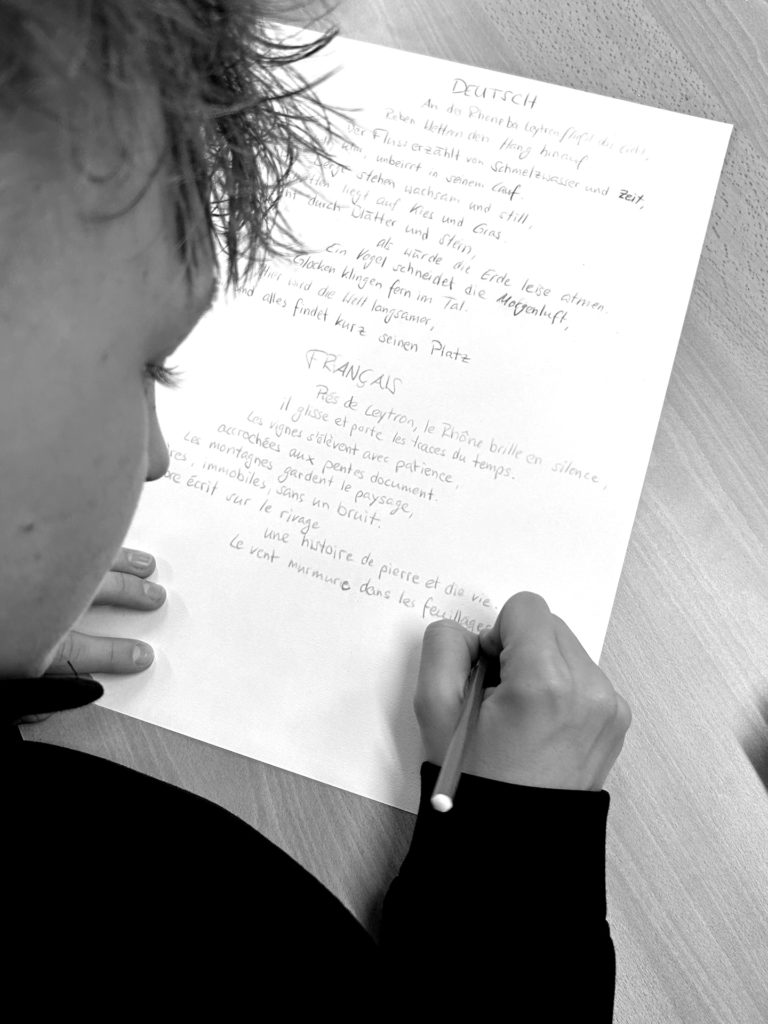 DEUTSCH
An der Rhone bei Leytron fließt das Licht,
Reben klettern den Hang hinauf
Der Fluss erzählt von Schmelzwasser und Zeit,
unbeirrt in seinem Lauf.
Berge stehen wachsam und still,
liegt auf Kies und Gras.
durch Blätter und Stein,
als würde die Erde leise atmen.
Ein Vogel schneidet die Morgenluft,
Glocken klingen fern im Tal.
Hier wird die Welt langsamer,
und alles findet kurz seinen Platz
FRANÇAIS
Près de Leytron, le Rhône brille en silence,
il glisse et porte les traces du temps.
Les vignes s'élèvent avec patience,
accrochées aux pentes document.
Les montagnes gardent le paysage,
immobiles, sans un bruit.
écrit sur le rivage
une histoire de pierre et die vie.
Le vent murmure dans les feuillages